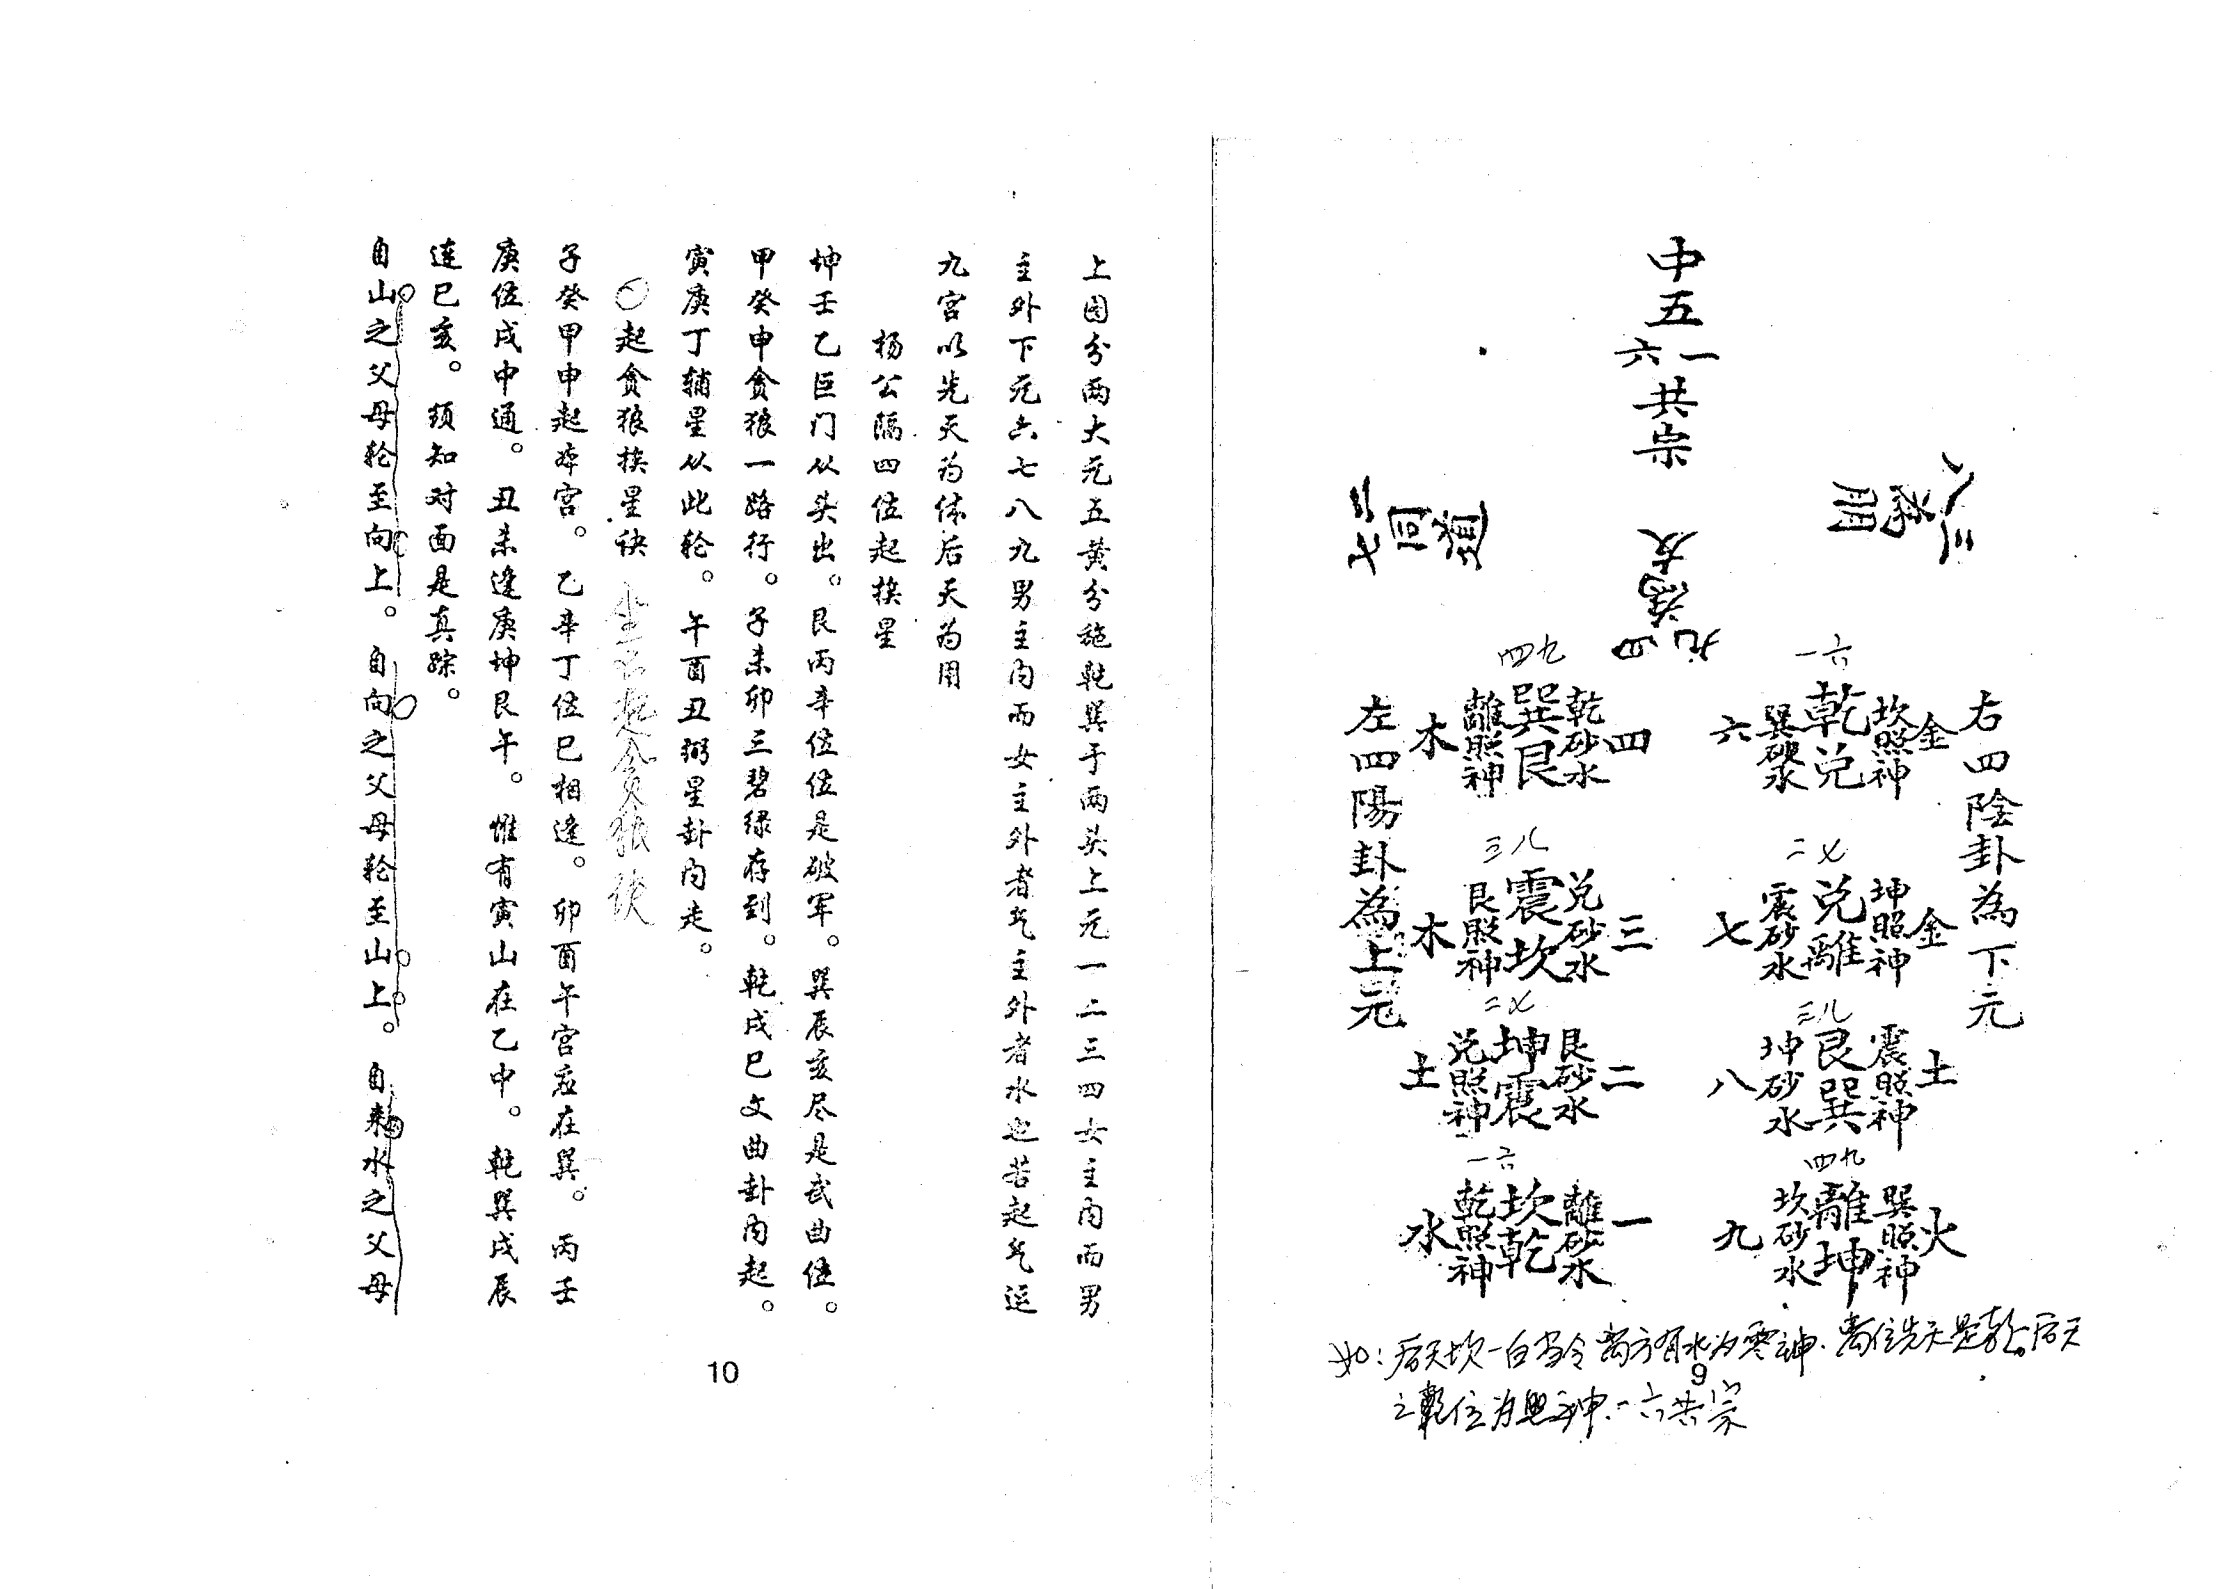 中五
六一
共宗
八三
為朋
二七
同道
四九
為友
右四陰卦為下元
一六
金
坎照神
乾兌
巽砂水
六
二七
金
坤照神
兌離
震砂水
七
三八
土
震照神
艮巽
坤砂水
八
四九
火
巽照神
離坤
坎砂水
九
四九
四
乾砂水
巽艮
離照神
木
三八
三
兌砂水
震坎
艮照神
木
二七
二
艮砂水
坤震
兌照神
土
一六
一
離砂水
坎乾
乾照神
水
左四陽卦為上元
如：后天坎一白当令离方有水为零神.离位先天是乾。后天
之乾位为照神.一六共宗
9
上图分两大元五黄分施乾巽于两头上元一二三四女主内而男
主外下元六七八九男主内而女主外者气主外者水也若起气运
九宫以先天为体后天为用
杨公隔四位起挨星
坤壬乙巨门从头出。艮丙辛位位是破军。巽辰亥尽是武曲位。
甲癸申贪狼一路行。子未卯三碧绿存到。乾戌巳文曲卦内起。
寅庚丁辅星从此轮。午酉丑弼星卦内走。
〇起贪狼挨星诀 坐山起贪狼诀
子癸甲申起本宫。乙辛丁位巳相逢。卯酉午宫应在巽。丙壬
庚位戌中通。丑未逢庚坤艮午。惟有寅山在乙中。乾巽戌辰
连巳亥。须知对面是真踪。
自山之父母轮至向上。自向之父母轮至山上。自来水之父母
10